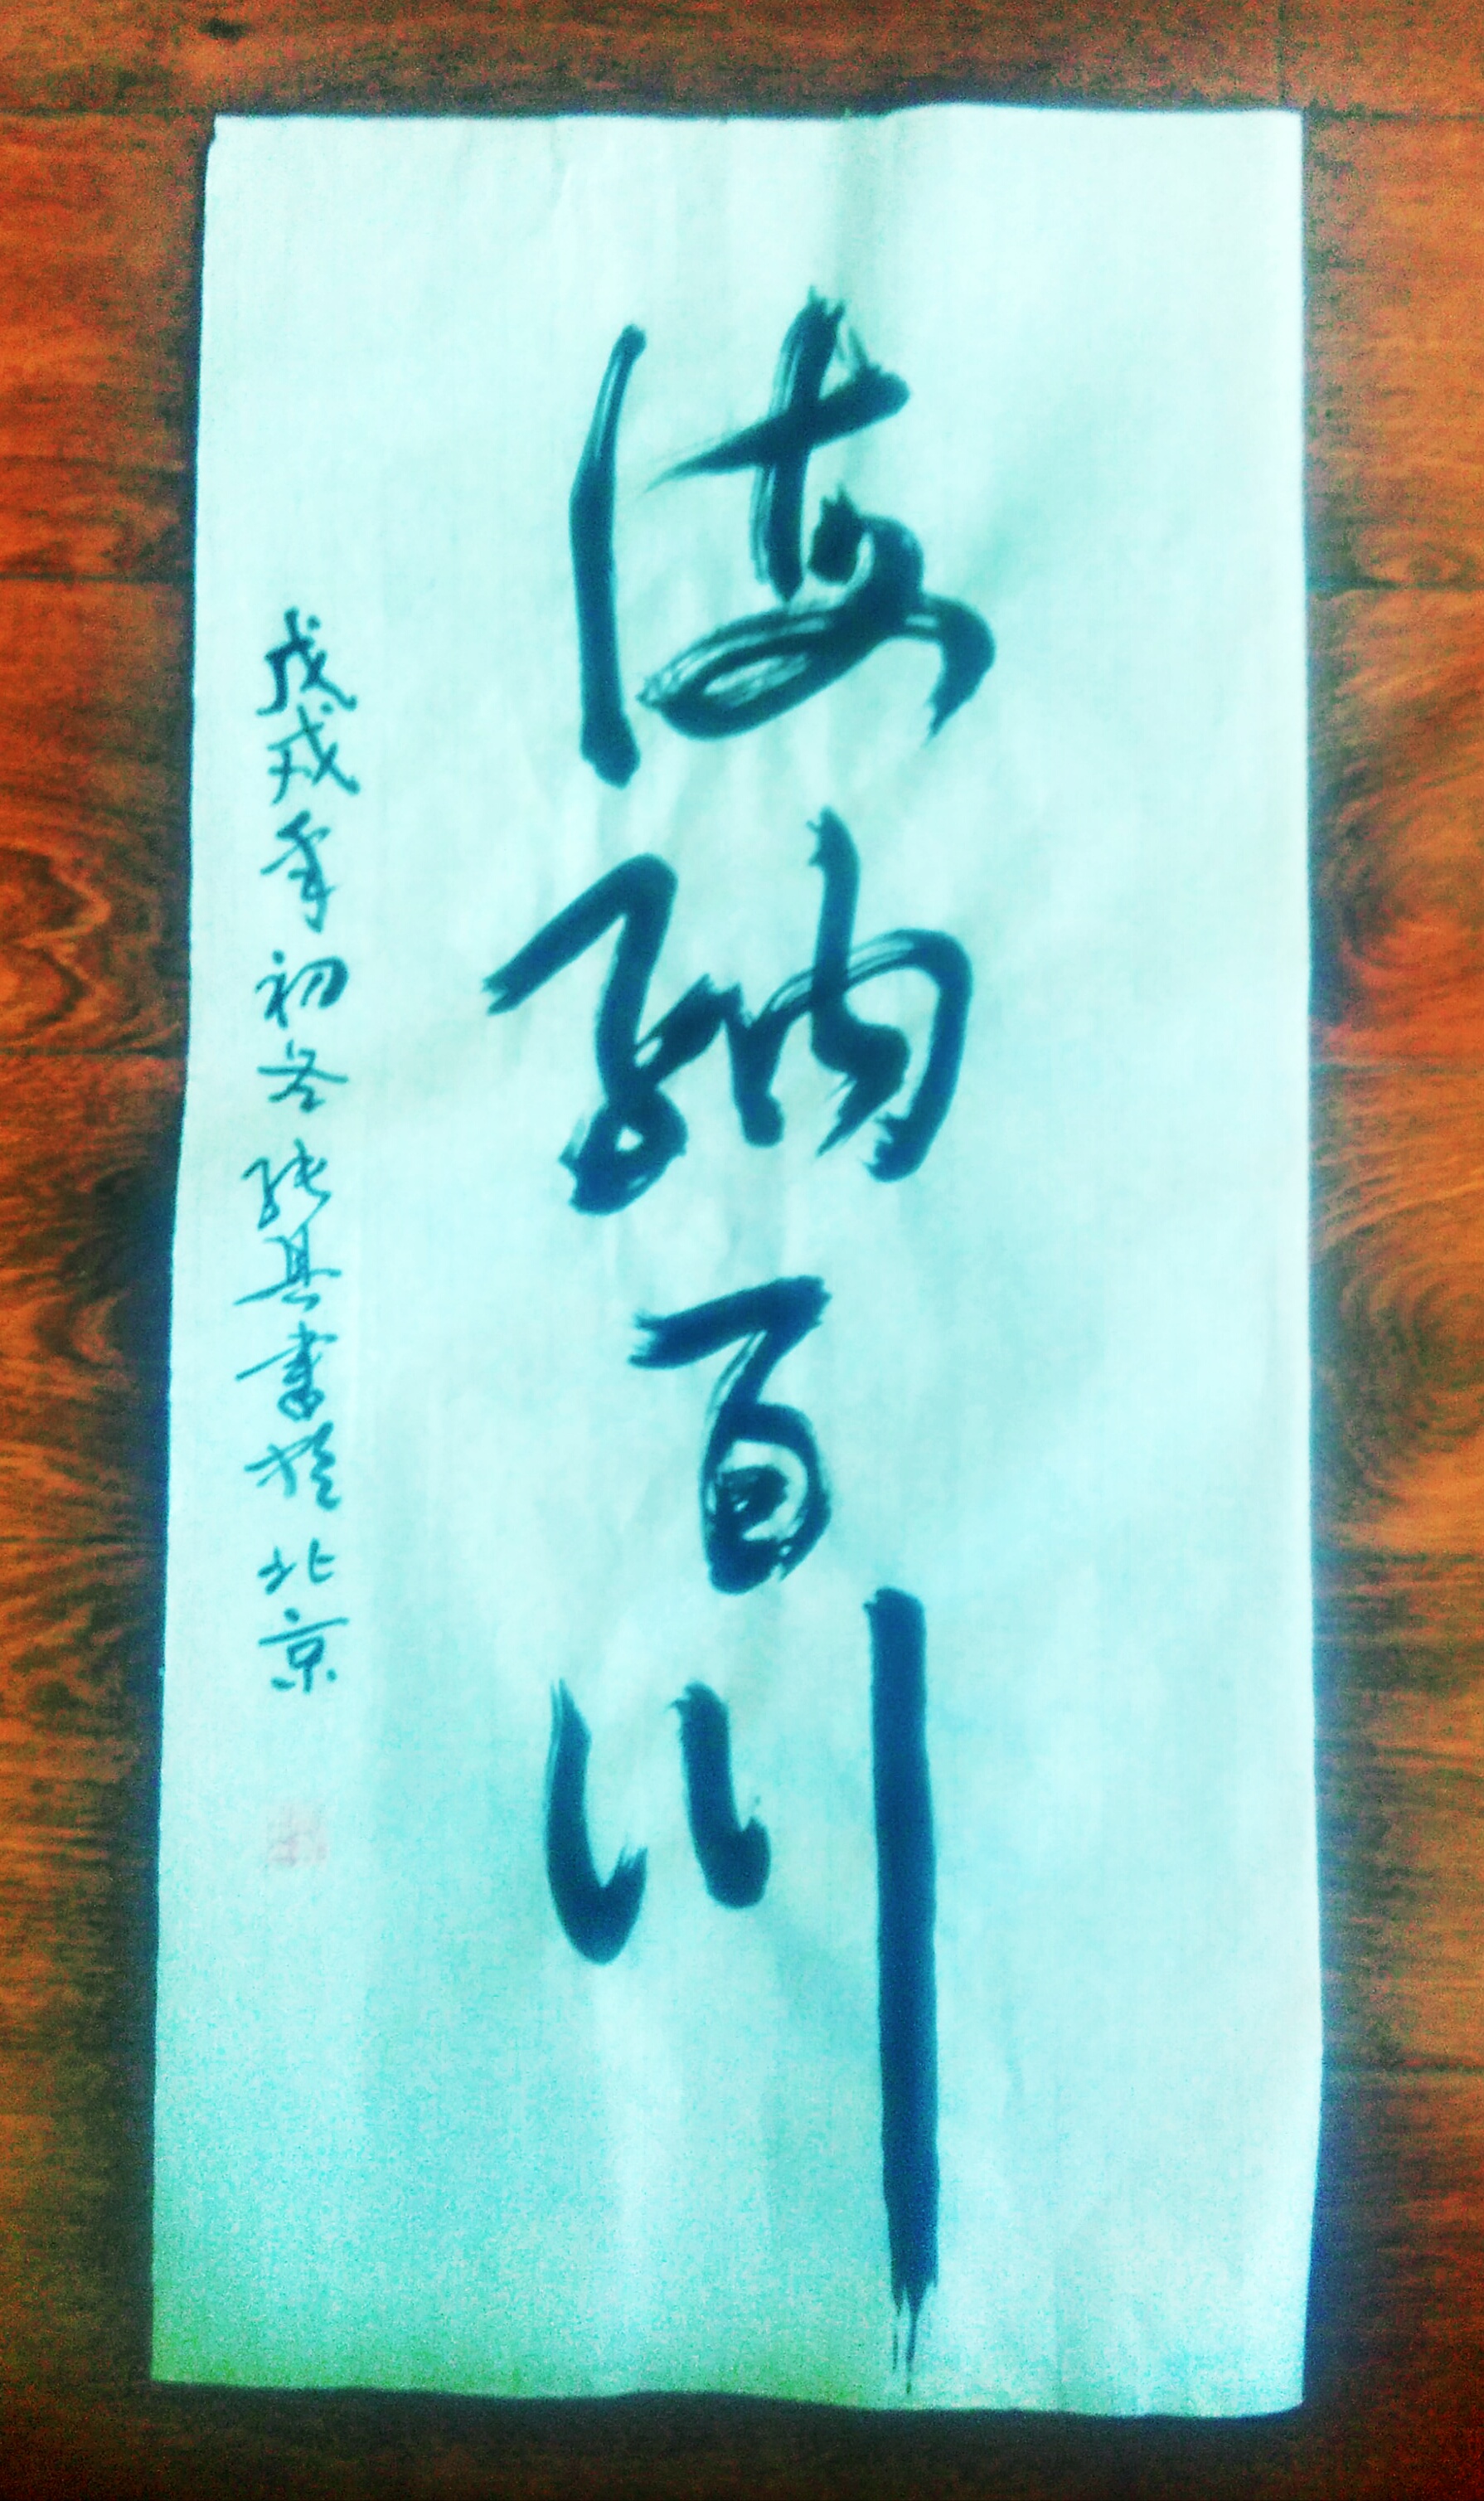 海纳百川
戊戌年初冬张其书于北京